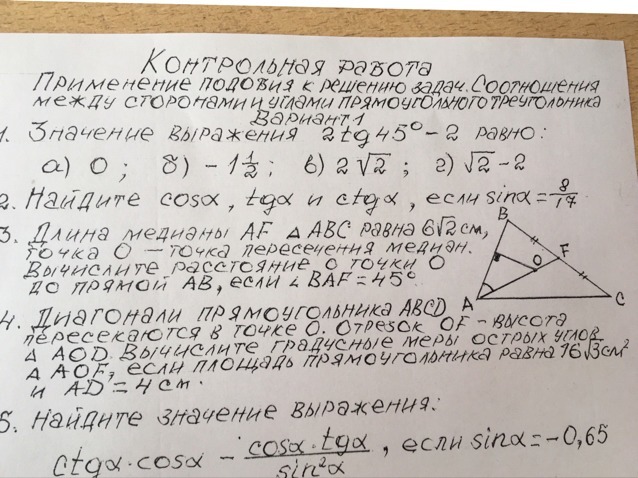 Контрольная работа
Применение подобия к решению задач. Соотношения
между сторонами и углами прямоугольного треугольника
Вариант 1
1. Значение выражения 2tg45° - 2 равно:
а) 0; б) -1 1/2; в) 2√2; г) √2-2
2. Найдите cosα, tgα и ctgα, если sinα = 8/17
3. Длина медианы AF △ ABC равна 6√2 см,
точка O — точка пересечения медиан.
Вычислите расстояние о точки O
до прямой AB, если ∠BAF = 45°
B
F
O
A
C
4. Диагонали прямоугольника ABCD
пересекаются в точке O. Отрезок OF - высота
△ AOD. Вычислите градусные меры острых углов
△ AOF, если площадь прямоугольника равна 16√3 см²
и AD = 4 см.
5. Найдите значение выражения:
ctgα·cosα - cosα·tgα/sin²α, если sinα = -0,65